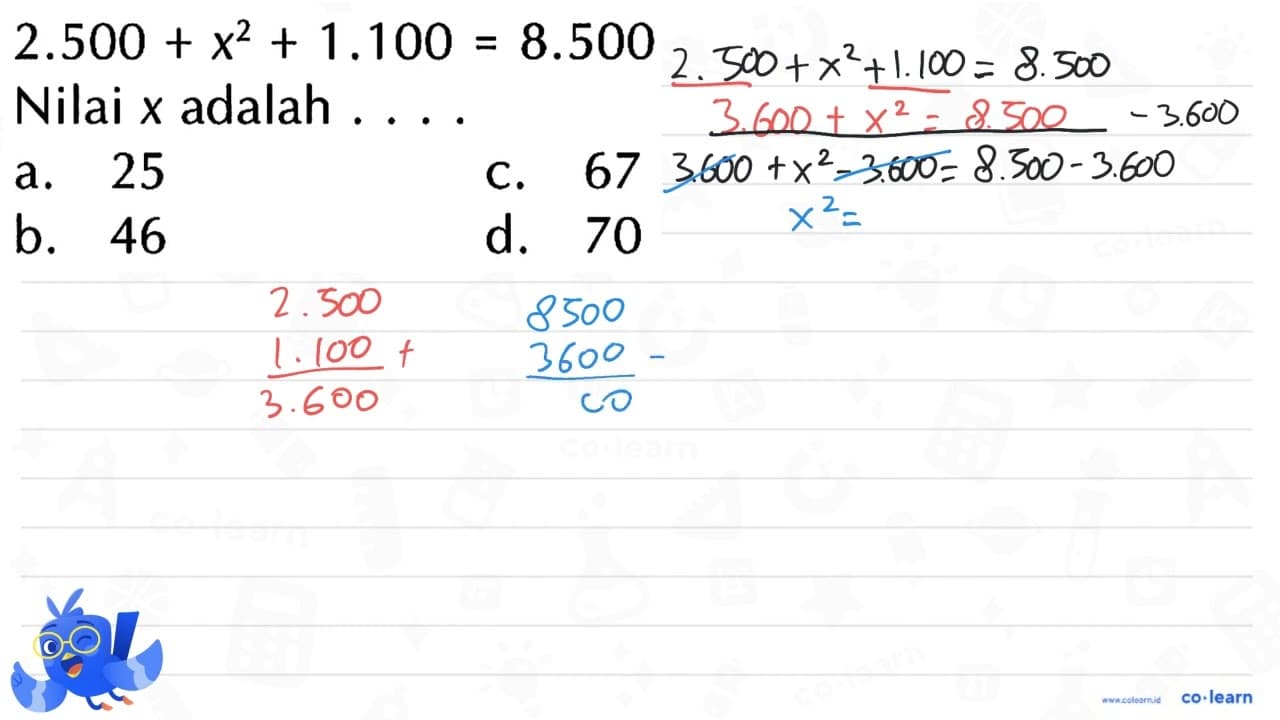 2.500 + x² + 1.100 = 8.500
Nilai x adalah . . . .
a. 25 c. 67
b. 46 d. 70
2.500 + x² + 1.100 = 8.500
3.600 + x² = 8.500 - 3.600
3.600 + x² - 3.600 = 8.500 - 3.600
x² =
2.500
1.100 +
3.600
8500
3600 -
00
www.colearn.id co·learn